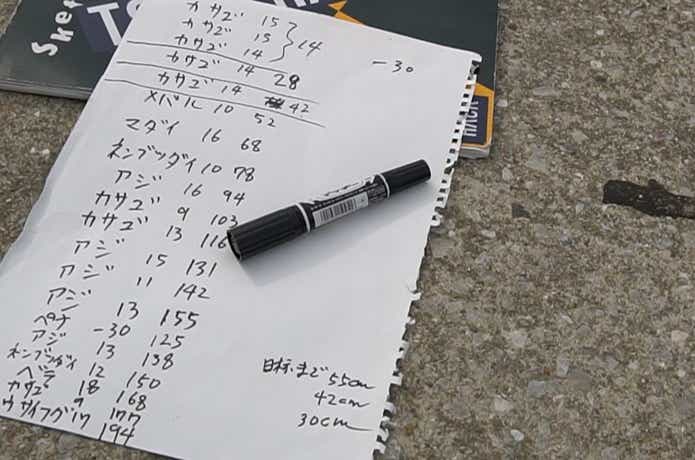 カサゴ 15
カサゴ 15 14
カサゴ 14
カサゴ 14 28
カサゴ 14 42
メバル 10 52
マダイ 16 68
ネンブツダイ 10 78
アジ 16 94
カサゴ 9 103
カサゴ 13 116
アジ 15 131
アジ 11 142
アジ 13 155
ペナ -30 125
アジ 13 138
ネンブツダイ 12 150
ベラ 18 168
カサゴ 9 177
ウサイフグ 17 194
-30
目標まで 55cm
42cm
30cm
Sket
HACK